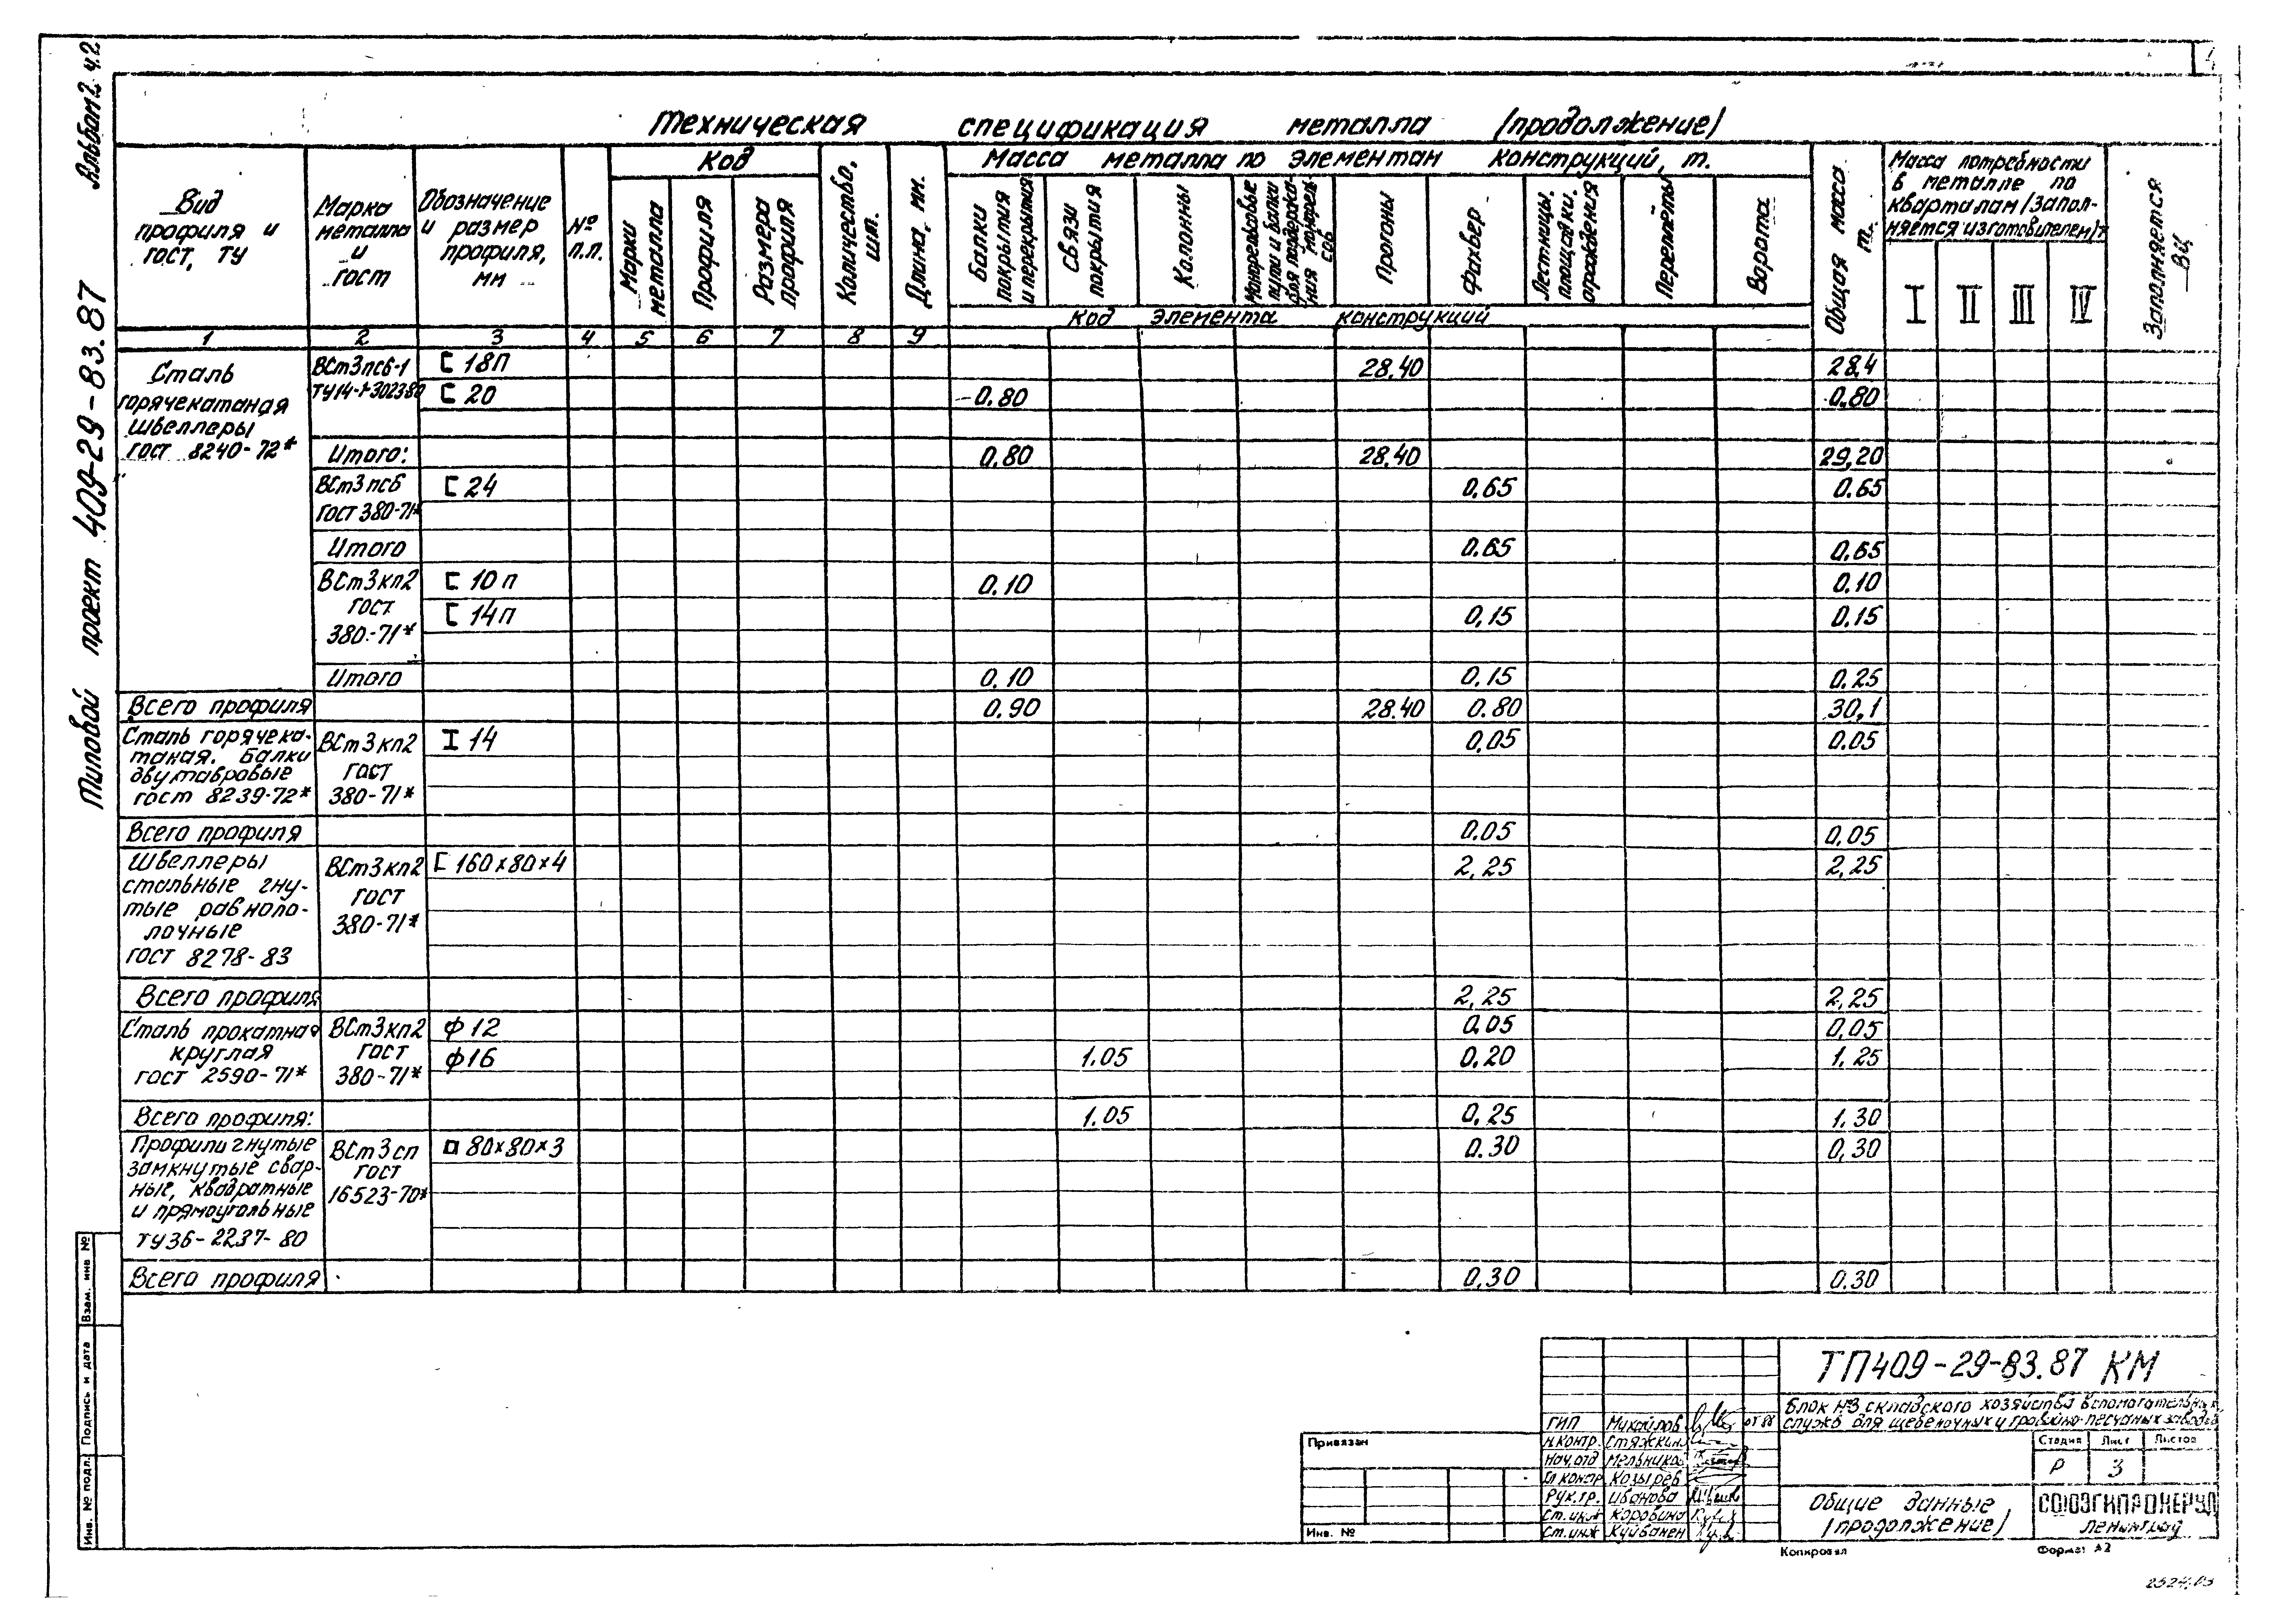 Альбом 2 ч.2
Типовой проект 409-29-83.87
Техническая спецификация металла (продолжение)
Вид профиля и ГОСТ, ТУ
Марка металла и ГОСТ
Обозначение и размер профиля, мм
№ п.п.
Код
Марки металла
Профиля
Размера профиля
Количество, шт.
Длина, мм.
Масса металла по элементам конструкций, т.
Балки покрытия и перекрытия
Связи покрытия
Колонны
Прогоны
Фахверк
Лестницы, площадки, ограждения
Переплеты
Ворота
Код элемента конструкций
Общая масса т.
Масса потребности в металле по кварталам (заполняется изготовителем) т
I II III IV
Заполняется ВЦ
1 2 3 4 5 6 7 8 9
Сталь горячекатаная швеллеры ГОСТ 8240-72*
ВСт3пс6-1 [ 18П 28.40 28,4
ТУ14-1-302380 [ 20 0.80 0.80
Итого: 0.80 28.40 29,20
ВСт3пс6 [ 24 0.65 0.65
ГОСТ 380-71*
Итого 0.65 0.65
ВСт3кп2 [ 10п 0.10 0.10
ГОСТ [ 14п 0,15 0.15
380-71*
Итого 0.10 0.15 0.25
Всего профиля 0.90 28.40 0.80 30,1
Сталь горячека- ВСт3кп2 I 14 0.05 0.05
таная. Балки ГОСТ
двутавровые
ГОСТ 8239-72* 380-71*
Всего профиля 0.05 0.05
Швеллеры ВСт3кп2 [ 160x80x4 2,25 2,25
стальные гну- ГОСТ
тые равнопо- 380-71*
лочные
ГОСТ 8278-83
Всего профиля 2,25 2,25
Сталь прокатная ВСт3кп2 ф12 0.05 0,05
круглая ГОСТ ф16 1.05 0.20 1,25
ГОСТ 2590-71* 380-71*
Всего профиля: 1.05 0,25 1.30
Профили гнутые ВСт3сп □ 80x80x3 0.30 0,30
замкнутые свар- ГОСТ
ные, квадратные 16523-70*
и прямоугольные
ТУ36-2237-80
Всего профиля 0,30 0.30
Взам. инв №
Подпись и дата
Инв. № подл.
Привязан
Инв. №
ГИП Михайлов
Н.контр. Стяжкин
Нач.отд Мельников
Гл констр Козырев
Рук.гр. Иванова
Ст.инж Коровина
Ст.инж Куйванен
ТП409-29-83.87 КМ
Блок №3 складского хозяйства вспомогательных
служб для щебеночных и гравийно-песчаных заводов
Стадия Лист Листов
Р 3
Общие данные
(продолжение)
СОЮЗГИПРОНЕРУД
Ленинград
Копировал
Формат А2